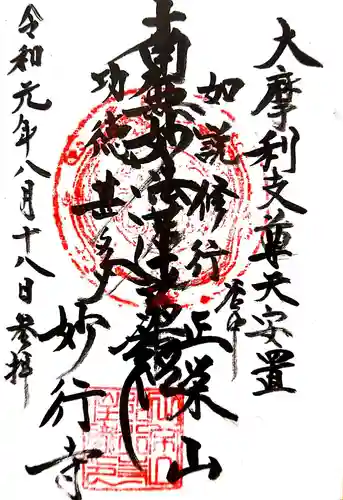 大摩利支尊天安置
如説修行
正栄山
南無妙法蓮華経
功徳甚多
妙行寺
令和元年八月十八日 参拝